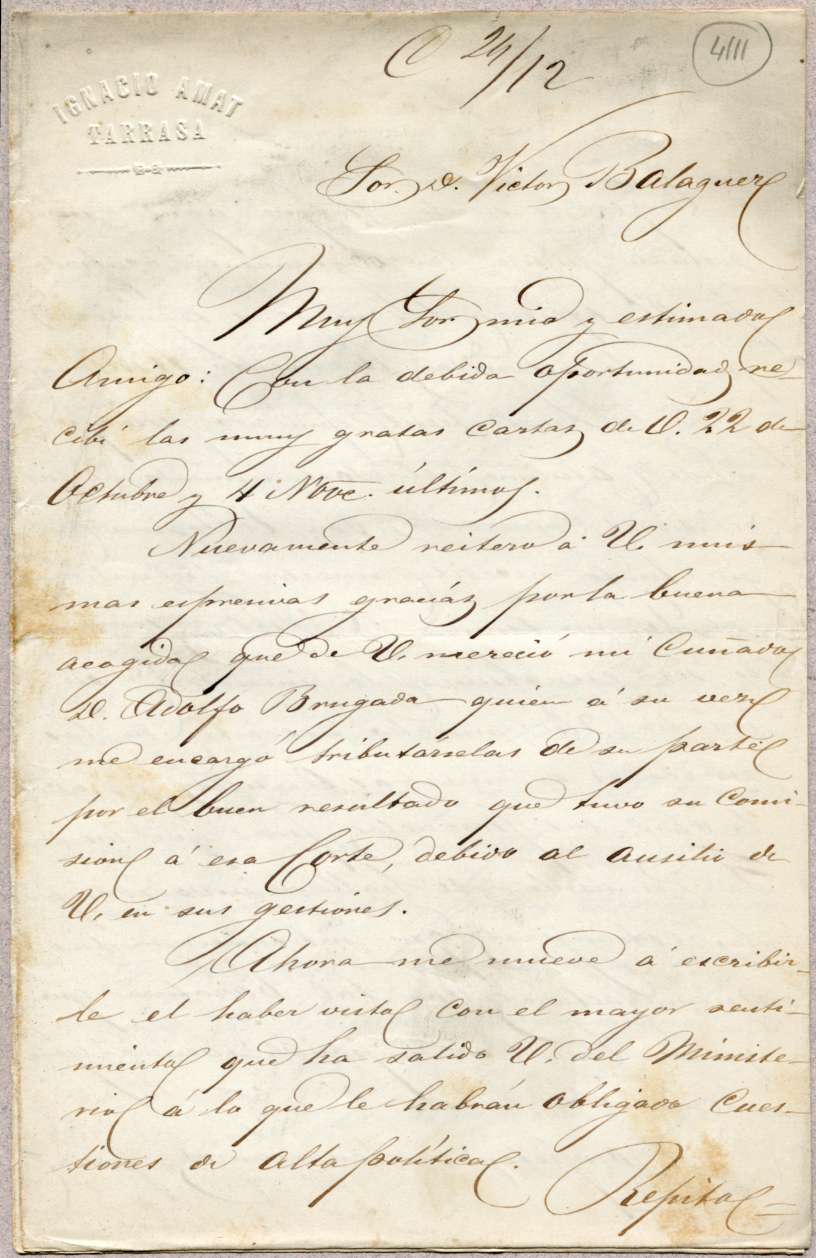 C 24/12
4111
IGNACIO AMAT
TARRASA
Sor. D. Victor Balaguer
Muy Sor mio y estimado
Amigo: Con la debida oportunidad re-
cibí las muy gratas cartas de V. 22 de
Octubre y 4 Nove. últimos.
Nuevamente reitero á V. mis
mas espresivas gracias por la buena
acogida que de V. mereció mi Cuñado
D. Adolfo Brugada quien á su vez
me encargó tributarselas de su parte
por el buen resultado que tuvo su Comi-
sion á esa Corte, debido al ausilio de
V. en sus gestiones.
Ahora me mueve á escribir-
le el haber visto con el mayor senti-
miento que ha salido V. del Ministe-
rio á lo que le habrán obligado Cues-
tiones de alta política.
Repito=